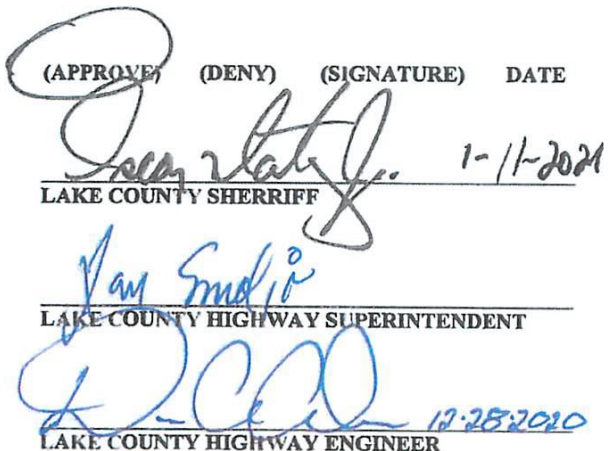 (APPROVE) (DENY) (SIGNATURE) DATE
1-11-2021
LAKE COUNTY SHERRIFF
LAKE COUNTY HIGHWAY SUPERINTENDENT
12-28-2020
LAKE COUNTY HIGHWAY ENGINEER